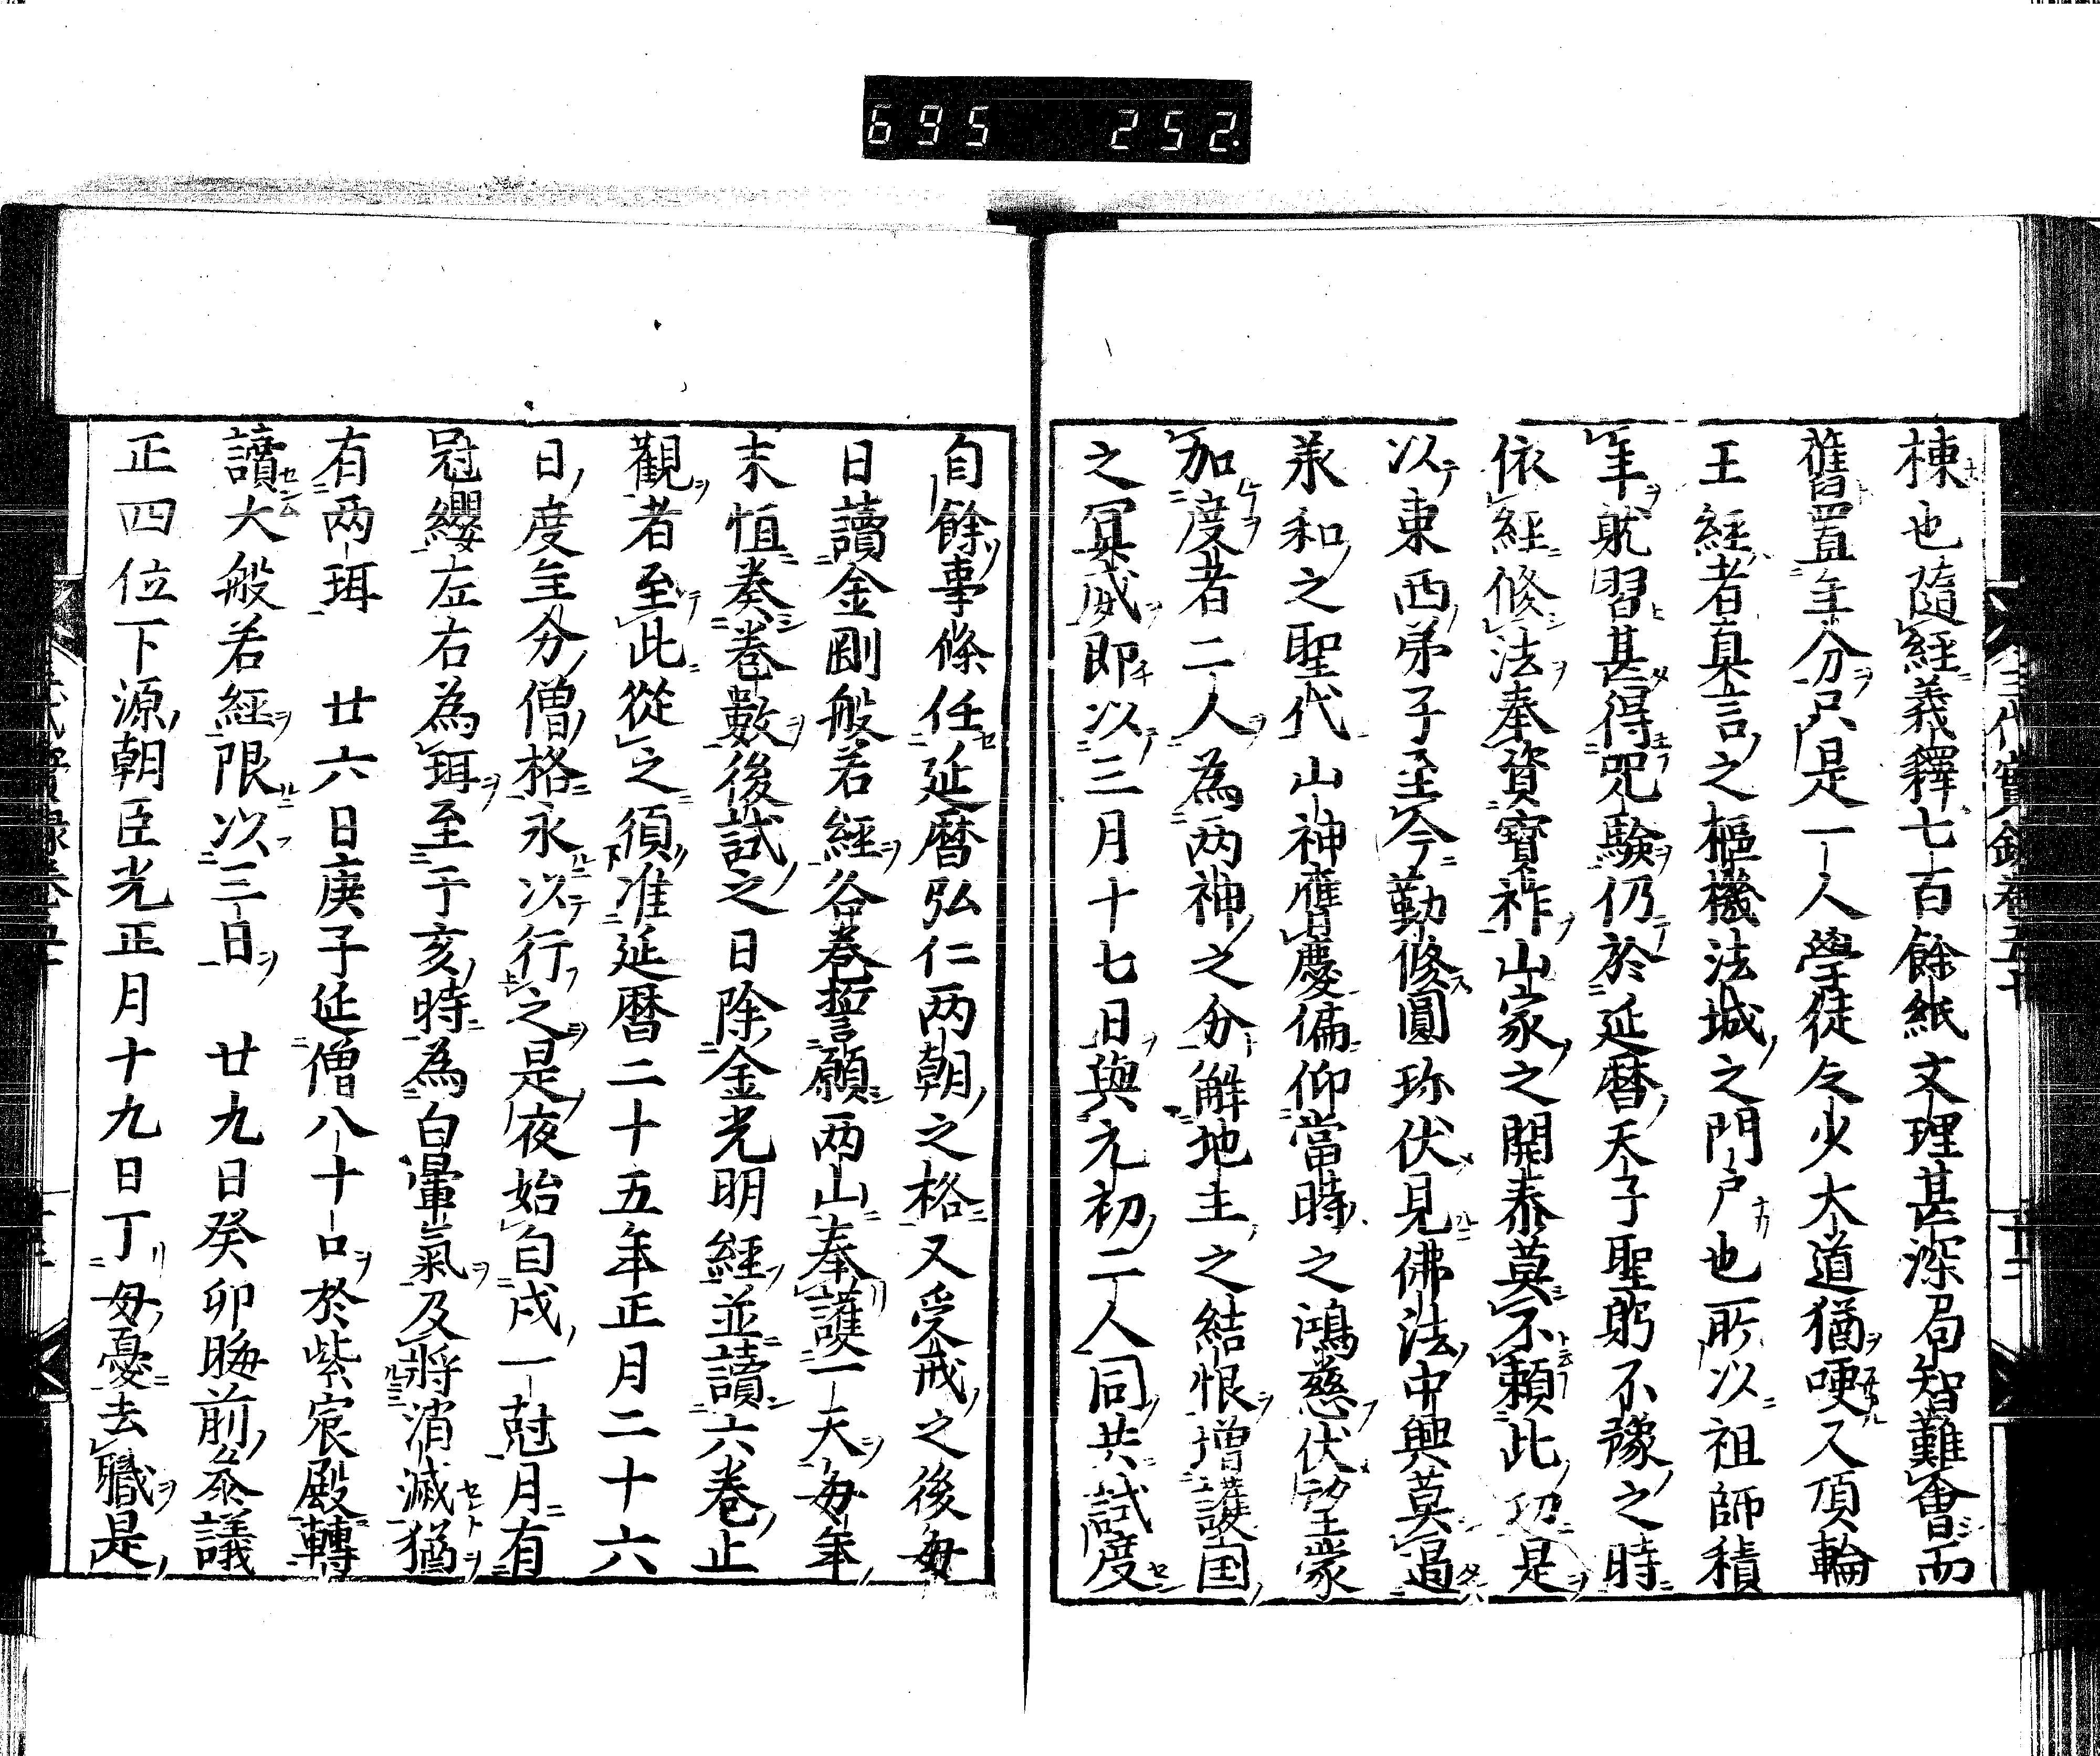 695 252.
棟也隨經義釋七百餘紙文理甚深局智難會而
舊置年分只是一人學徒令少大道猶哽又頂輪
王經者真言之樞機法城之門戸也所以祖師積
年就習甚得咒驗仍於延暦天子聖躬不豫之時
依經修法奉資寳祚山家之開泰莫不頼此功是
以東西弟子至今勤修圓珎伏見佛法中興莫過
承和之聖代山神應慶偏仰當時之鴻慈伏望蒙
加度者二人為两神之分解地主之結恨増護国
之冥威即以三月十七日與元初二人同共試度
自餘事條任延暦弘仁两朝之格又受戒之後毎
日讀金剛般若經各巻誓願两山奉護一天毎年
末恒奏巻數後試之日除金光明經並讀六巻止
觀者至此從之須准延暦二十五年正月二十六
日度年分僧格永以行之是夜始自戌一尅月有
冠纓左右為珥至于亥時為白暈氣及將消滅猶
有两珥　廿六日庚子延僧八十口於紫宸殿轉
讀大般若經限以三日　廿九日癸卯晦前參議
正四位下源朝臣光正月十九日丁母憂去職是